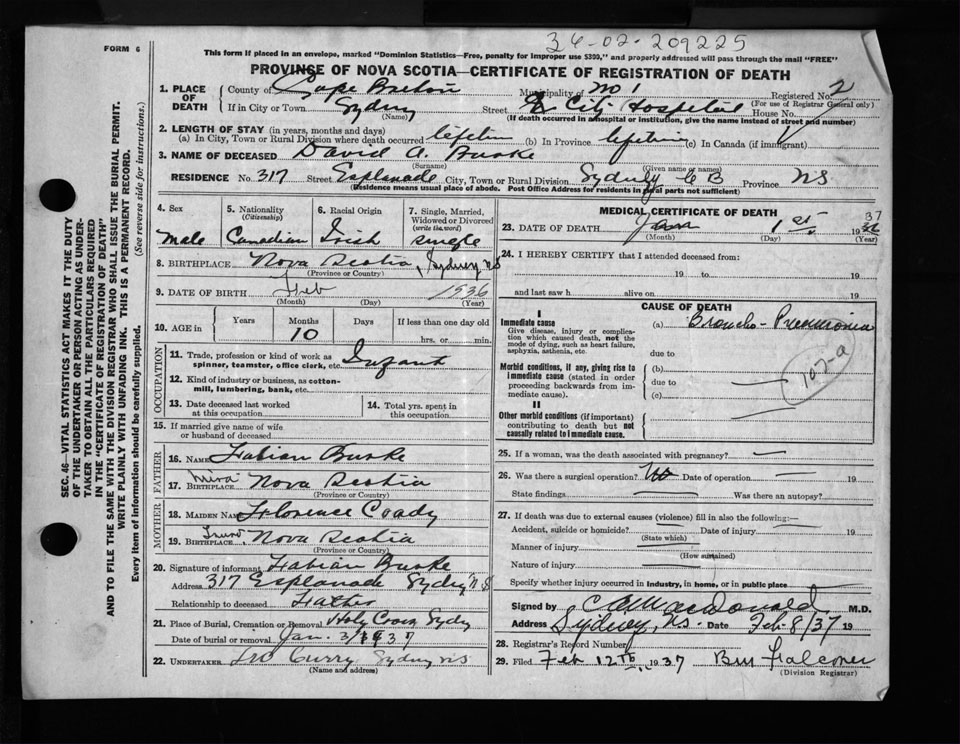 36-02-209225
FORM 6
This form if placed in an envelope, marked "Dominion Statistics—Free, penalty for improper use $300," and properly addressed will pass through the mail "FREE"
PROVINCE OF NOVA SCOTIA—CERTIFICATE OF REGISTRATION OF DEATH
1. PLACE OF DEATH County of Cape Breton Municipality of No 1 Registered No. 2
(For use of Registrar General only)
If in City or Town Sydney Street City Hospital House No.
(Name) (If death occurred in a hospital or institution, give the name instead of street and number)
2. LENGTH OF STAY (in years, months and days)
(a) In City, Town or Rural Division where death occurred lifetime (b) In Province lifetime (c) In Canada (if immigrant)
3. NAME OF DECEASED David A. Burke
(Surname) (Given name or names)
RESIDENCE No. 317 Street Esplanade City, Town or Rural Division Sydney C B Province NS
(Residence means usual place of abode. Post Office Address for residents in rural parts not sufficient)
4. Sex Male
5. Nationality (Citizenship) Canadian
6. Racial Origin Irish
7. Single, Married, Widowed or Divorced (write the word) single
8. BIRTHPLACE Nova Scotia, Sydney NS
(Province or Country)
9. DATE OF BIRTH Feb 1936
(Month) (Day) (Year)
10. AGE in Years Months Days If less than one day old
10 hrs. or min.
OCCUPATION
11. Trade, profession or kind of work as spinner, teamster, office clerk, etc. Infant
12. Kind of industry or business, as cotton-mill, lumbering, bank, etc.
13. Date deceased last worked at this occupation
14. Total yrs. spent in this occupation
15. If married give name of wife or husband of deceased
FATHER
16. NAME Fabian Burke
17. BIRTHPLACE Mira Nova Scotia
(Province or Country)
MOTHER
18. MAIDEN NAME Florence Coady
19. BIRTHPLACE Truro, Nova Scotia
(Province or Country)
20. Signature of informant Fabian Burke
Address 317 Esplanade Sydney N.S
Relationship to deceased Father
21. Place of Burial, Cremation or Removal Holy Cross Sydy
Date of burial or removal Jan. 3/1937
22. UNDERTAKER Curry Sydney NS
MEDICAL CERTIFICATE OF DEATH
23. DATE OF DEATH Jan 1st 1936 37
(Month) (Day) (Year)
24. I HEREBY CERTIFY that I attended deceased from:
19 to 19
and last saw h alive on 19
CAUSE OF DEATH
I
Immediate cause
Give disease, injury or complication which caused death, not the mode of dying, such as heart failure, asphyxia, asthenia, etc.
(a) Broncho-Pneumonia
due to
Morbid conditions, if any, giving rise to immediate cause (stated in order proceeding backwards from immediate cause).
(b)
due to
(c)
107-a
II
Other morbid conditions (if important) contributing to death but not causally related to immediate cause.
25. If a woman, was the death associated with pregnancy?
26. Was there a surgical operation? No Date of operation 19
State findings Was there an autopsy?
27. If death was due to external causes (violence) fill in also the following:—
Accident, suicide or homicide? Date of injury 19
(State which)
Manner of injury
(How sustained)
Nature of injury
Specify whether injury occurred in industry, in home, or in public place
Signed by C A MacDonald M.D.
Address Sydney, N.S. Date Feb 8/37 19
28. Registrar's Record Number
29. Filed Feb 12TH 1937 Falconer
(Division Registrar)
SEC. 46—VITAL STATISTICS ACT MAKES IT THE DUTY
OF THE UNDERTAKER OR PERSON ACTING AS UNDER-
TAKER TO OBTAIN ALL THE PARTICULARS REQUIRED
IN THE "CERTIFICATE OF REGISTRATION OF DEATH"
AND TO FILE THE SAME WITH THE DIVISION REGISTRAR WHO SHALL ISSUE THE BURIAL PERMIT.
WRITE PLAINLY WITH UNFADING INK. THIS IS A PERMANENT RECORD.
Every item of information should be carefully supplied. (See reverse side for instructions.)